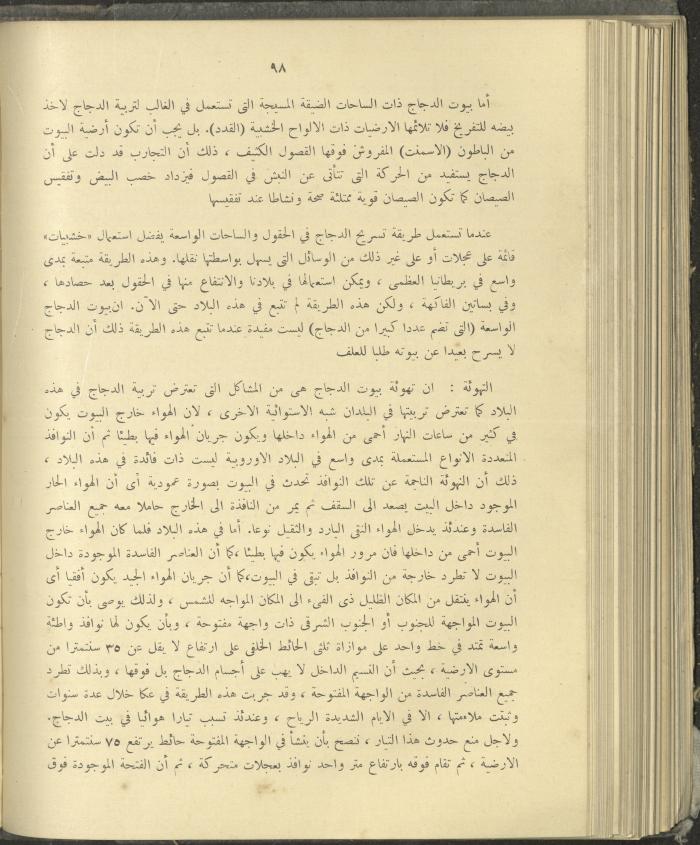 ٩٨
أما بيوت الدجاج ذات الساحات الضيقة المسيجة التى تستعمل في الغالب لتربية الدجاج لاخذ
بيضه للتفريخ فلا تلائمها الارضيات ذات الالواح الخشبية (القدد). بل يجب أن تكون أرضية البيوت
من الباطون (الاسمنت) المفروش فوقها القصول الكثيف ، ذلك أن التجارب قد دلت على أن
الدجاج يستفيد من الحركة التى تتأتى عن النبش في القصول فيزداد خصب البيض وتفقيس
الصيصان كما تكون الصيصان قوية ممتلئة صحة ونشاطا عند تفقيسها
عندما تستعمل طريقة تسريح الدجاج في الحقول والساحات الواسعة يفضل استعمال «خشبيات»
قائمة على عجلات أو على غير ذلك من الوسائل التى يسهل بواسطتها نقلها. وهذه الطريقة متبعة بمدى
واسع في بريطانيا العظمى ، ويمكن استعمالها في بلادنا والانتفاع منها في الحقول بعد حصادها ،
وفي بساتين الفاكهة ، ولكن هذه الطريقة لم تتبع في هذه البلاد حتى الآن. ان بيوت الدجاج
الواسعة (التى تضم عددا كبيرا من الدجاج) ليست مفيدة عندما تتبع هذه الطريقة ذلك أن الدجاج
لا يسرح بعيدا عن بيوته طلبا للعلف
التهوئة : ان تهوئة بيوت الدجاج هى من المشاكل التى تعترض تربية الدجاج في هذه
البلاد كما تعترض تربيتها في البلدان شبه الاستوائية الاخرى ، لان الهواء خارج البيوت يكون
في كثير من ساعات النهار أحمى من الهواء داخلها ويكون جريان الهواء فيها بطيئا ثم أن النوافذ
المتعددة الانواع المستعملة بمدى واسع في البلاد الاوروبية ليست ذات فائدة في هذه البلاد ،
ذلك أن التهوئة الناجمة عن تلك النوافذ تحدث في البيوت بصورة عمودية أى أن الهواء الحار
الموجود داخل البيت يصعد الى السقف ثم يمر من النافذة الى الخارج حاملا معه جميع العناصر
الفاسدة وعندئذ يدخل الهواء النقى البارد والثقيل نوعا. أما في هذه البلاد فلما كان الهواء خارج
البيوت أحمى من داخلها فان مرور الهواء يكون فيها بطيئا ،كما أن العناصر الفاسدة الموجودة داخل
البيوت لا تطرد خارجة من النوافذ بل تبقى في البيوت،كما أن جريان الهواء الجيد يكون أفقيا أى
أن الهواء ينتقل من المكان الظليل ذى الفىء الى المكان المواجه للشمس ، ولذلك يوصى بأن تكون
البيوت المواجهة للجنوب أو الجنوب الشرقى ذات واجهة مفتوحة ، وبأن يكون لها نوافذ واطئة
واسعة تمتد في خط واحد على موازاة ثلثى الحائط الخلفى على ارتفاع لا يقل عن ٣٥ سنتمترا من
مستوى الارضية ، بحيث أن النسيم الداخل لا يهب على أجسام الدجاج بل فوقها ، وبذلك تطرد
جميع العناصر الفاسدة من الواجهة المفتوحة ، وقد جربت هذه الطريقة في عكا خلال عدة سنوات
وثبتت ملاءمتها ، الا في الايام الشديدة الرياح ، وعندئذ تسبب تيارا هوائيا في بيت الدجاج.
ولاجل منع حدوث هذا التيار ، ننصح بأن ينشأ في الواجهة المفتوحة حائط يرتفع ٧٥ سنتمترا عن
الارضية ، ثم تقام فوقه بارتفاع متر واحد نوافذ بعجلات متحركة ، ثم أن الفتحة الموجودة فوق